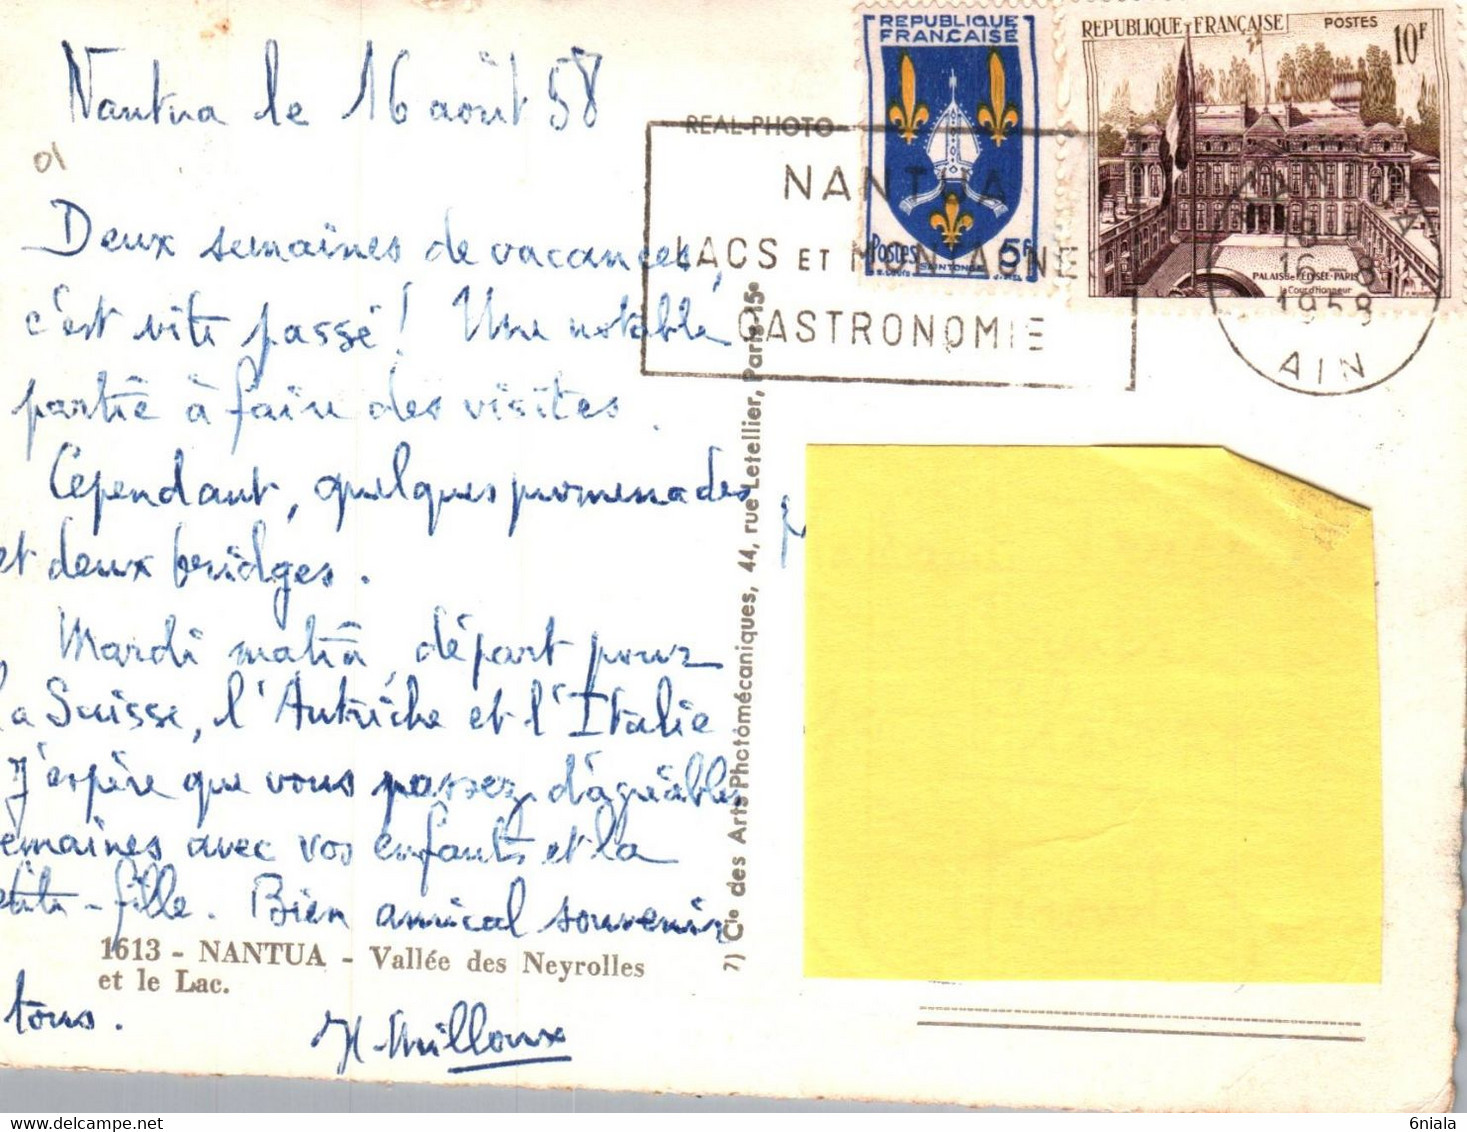 Nantua le 16 août 58
01
Deux semaines de vacances,
c'est vite passé ! Une notable
partie à faire des visites.
Cependant, quelques promenades
et deux bridges.
Mardi matin, départ pour
la Suisse, l'Autriche et l'Italie
J'espère que vous passez d'agréables
emaines avec vos enfants et la
etite-fille. Bien amical souvenir
tous.
H. Milloux
1613 - NANTUA - Vallée des Neyrolles
et le Lac.
7) Cie des Arts Photomécaniques, 44, rue Letellier, Paris-15e
REAL-PHOTO
NANTUA
LACS ET MONTAGNE
GASTRONOMIE
REPUBLIQUE
FRANCAISE
Postes 5f
SAINTONGE
REPUBLIQUE FRANÇAISE POSTES 10F
PALAIS de L'ELYSÉE-PARIS
la Cour d'honneur
NANTUA
16-8
1958
AIN
6niala